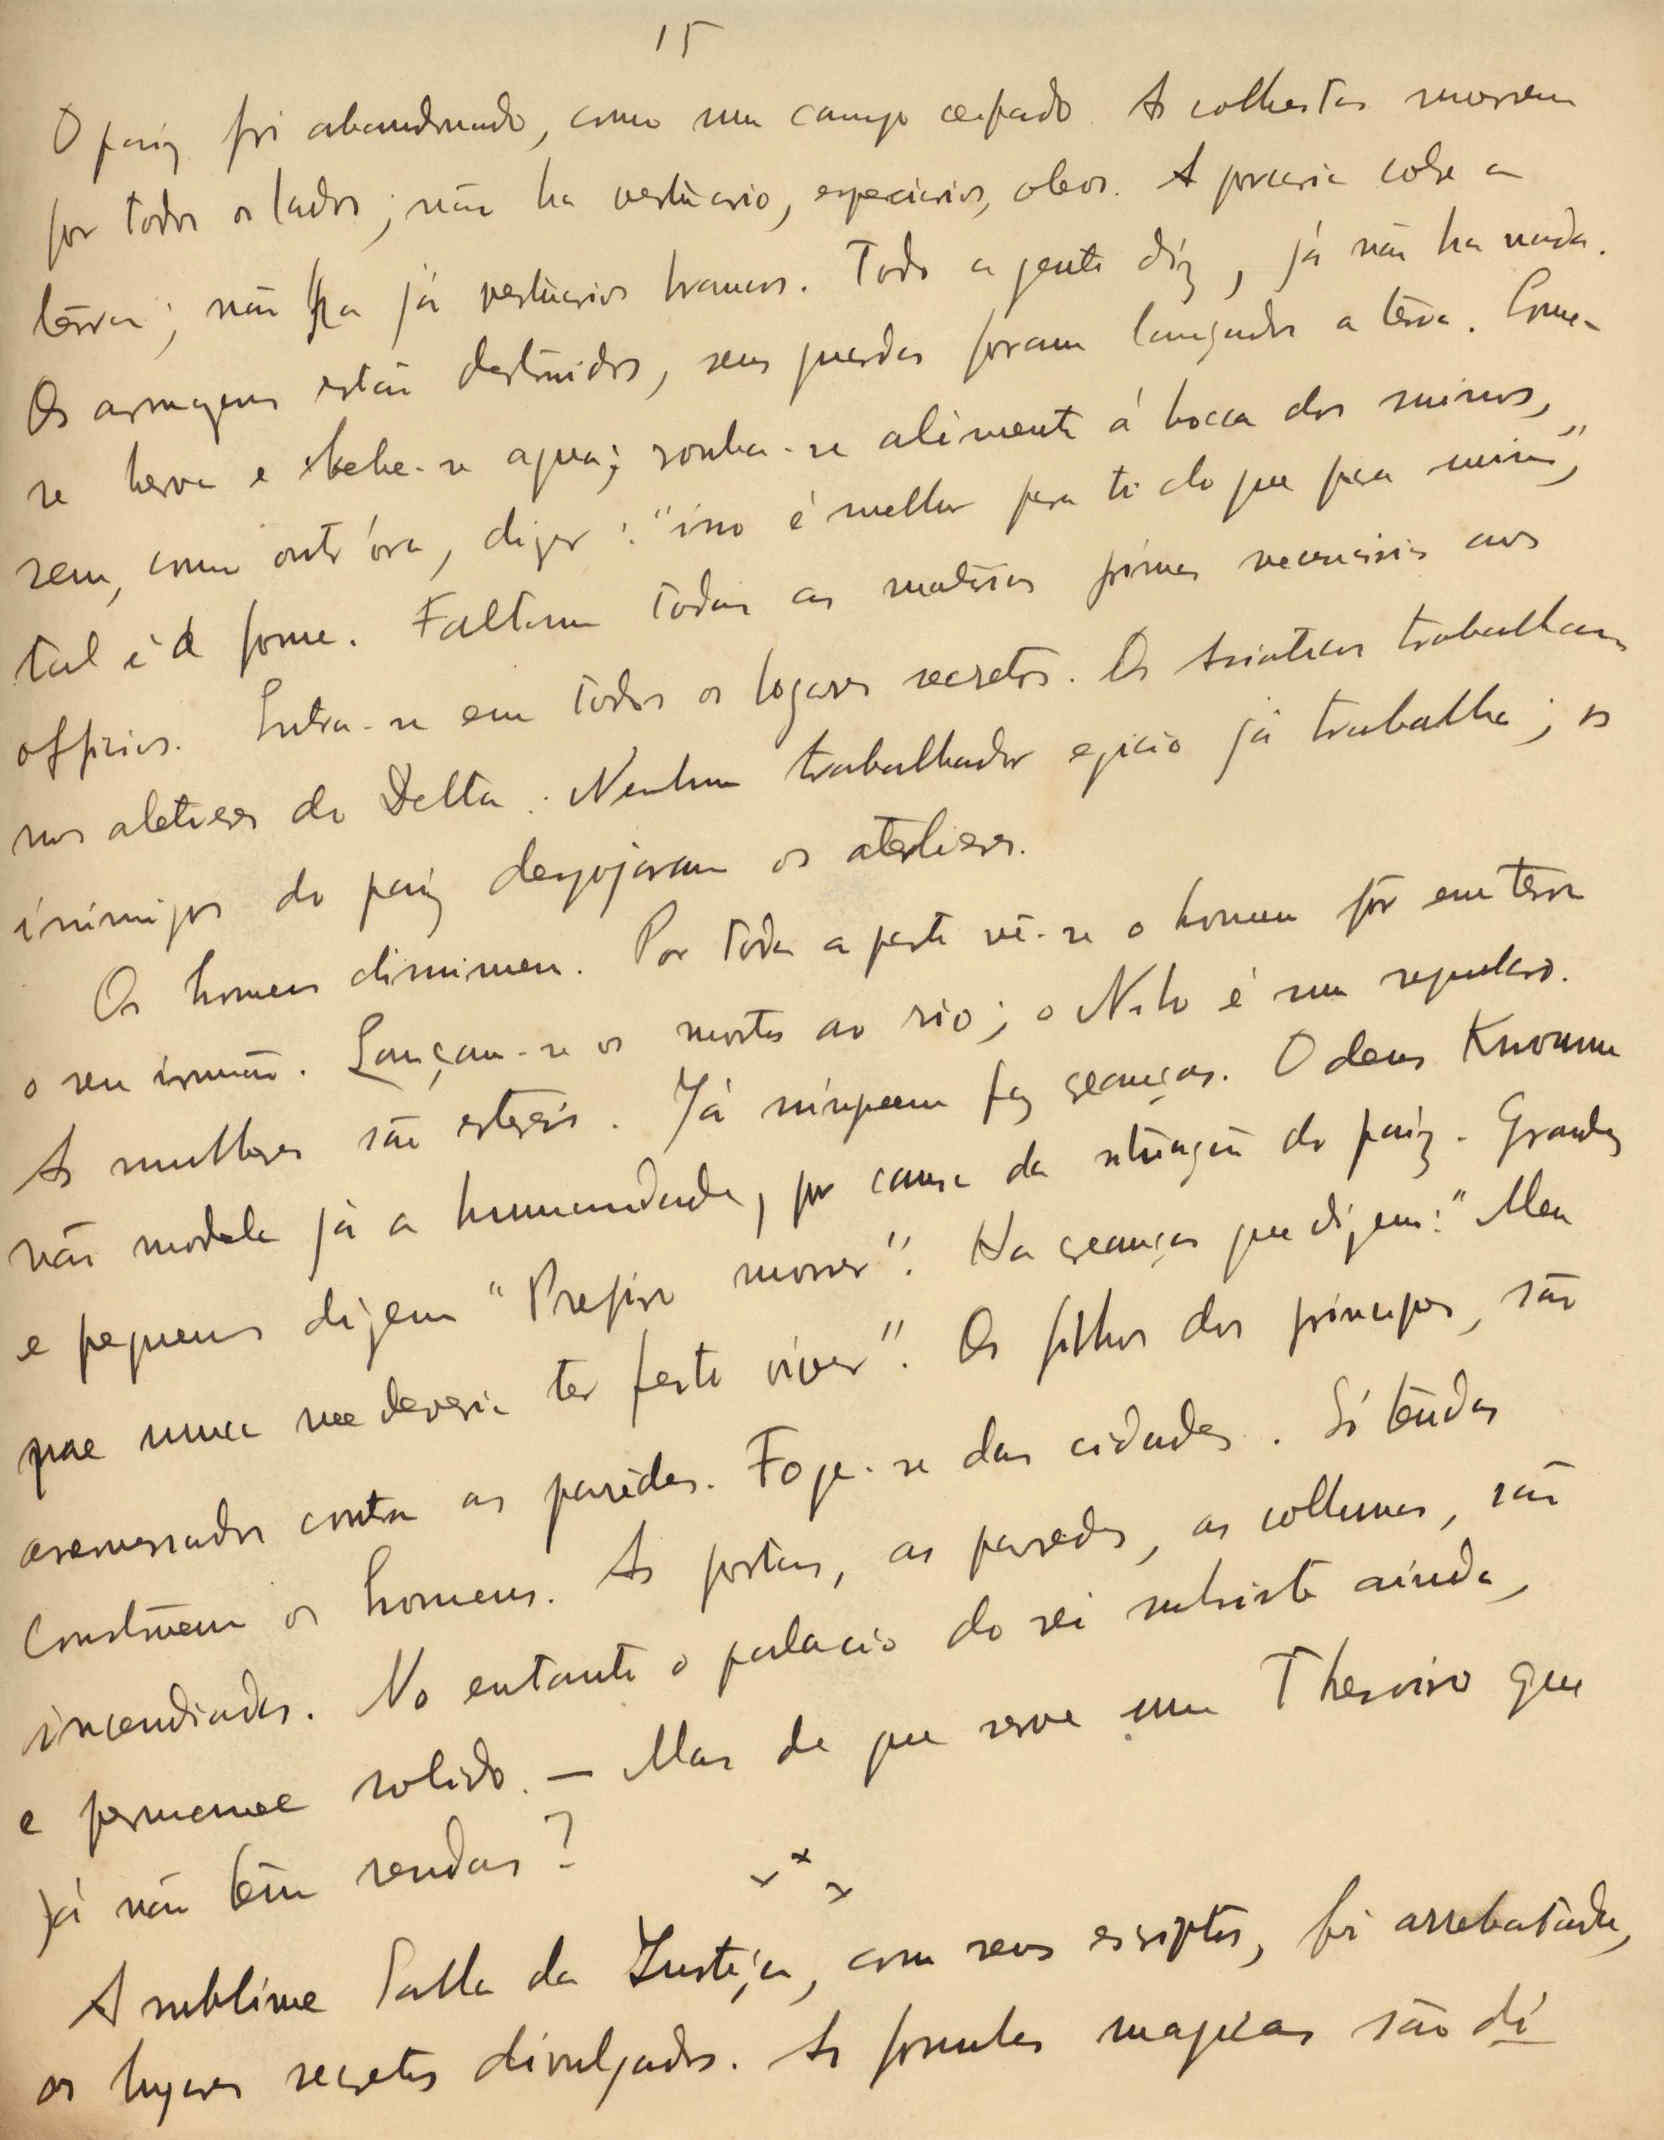 15
O paiz foi abandonado, como um campo ceifado. As colheitas morrem
por todos os lados; não ha vestuario, especiarias, oleos. A porcaria cobre a
térra; não ha já vestuarios brancos. Toda a gente diz, já não ha nada.
Os armazens estão destruidos, seus guardas foram lançados a terra. Come-
se herva e bebe-se agua; rouba-se alimento á bocca dos suinos,
sem, como outr'óra, dizer: "isso é melhor para ti do que para mim",
tal é a fome. Faltam todas as materias primas necessarias aos
officios. Entra-se em todos os logares secretos. Os Asiaticos trabalham
nos aletieres do Delta. Nenhum trabalhador egicio já trabalha; os
inimigos do paiz despojaram os atelieres.
Os homens diminuem. Por toda a parte vê-se o homem pôr em terra
o seu irmão. Lançam-se os mortos ao rio; o Nilo é um sepulcro.
As mulheres são estereis. Já ninguem faz creanças. O deus Knoumu
não modela já a humanidade, por causa da situação do paiz. Grandes
e pequenos dizem "Prefiro morrer". Ha creanças que dizem: "Meu
pae nunca me deveria ter feito viver". Os filhos dos principes, são
arremessados contra as parêdes. Foge-se das cidades. Só tendas
construem os homens. As portas, as paredes, as collunas, são
incendiadas. No entanto o palacio do rei subsiste ainda,
e permanece solido. — Mas de que serve um Thesoiro que
já não têm rendas?
x x x
A sublime Salla da Justiça, com seus escriptos, foi arrebatada,
os lugares secretos divulgados. As formulas magicas são di